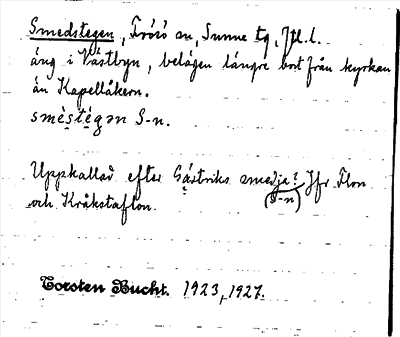 Smedstegen, Frösö sn, Sunne tg, Jtl. l.
äng i Västbyn, belägen längre bort från kyrkan
än Kapellåkern.
smèstègən S-n.
Uppkallad efter Gästriks smedja? Jfr Flon
(S-n)
och Kråkstaflon.
Torsten Bucht. 1923, 1927.